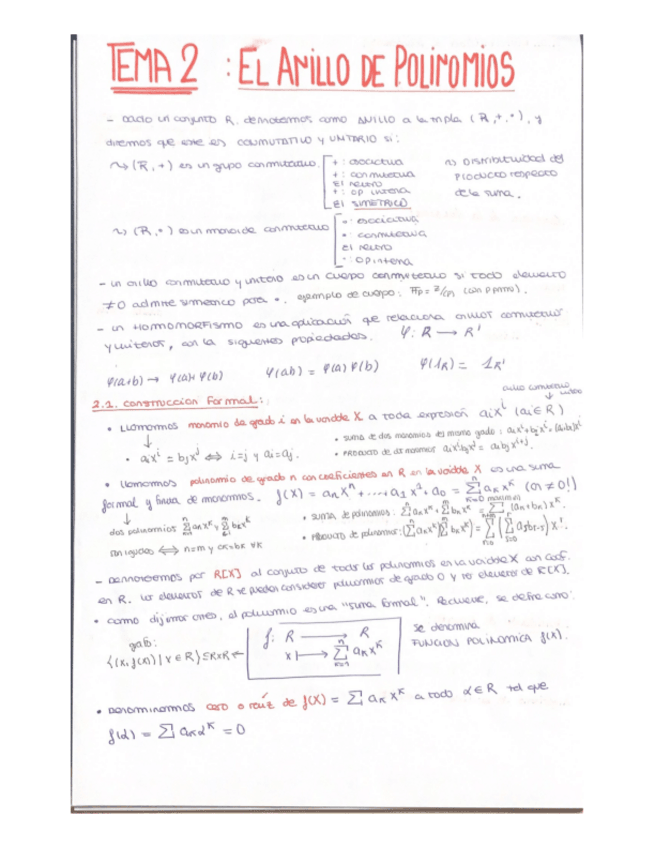 TEMA 2 : EL ANILLO DE POLINOMIOS
- Dado un conjunto R, denotaremos como ANILLO a la tripla (R,+,·), y
diremos que este es CONMUTATIVO y UNITARIO si:
↝ (R,+) es un grupo conmutativo
+: asociativa
+: conmutativa
El neutro
+: op interna
El SIMÉTRICO
↝ Distributividad del
PRODUCTO respecto
de la suma.
↝ (R,·) es un monoide conmutativo
·: asociativa
·: conmutativa
El neutro
·: op interna
- un anillo conmutativo y unitario es un cuerpo conmutativo si todo elemento
≠0 admite simétrico para ·. ejemplo de cuerpo: Fp = Z/(p) (con p primo).
- un HOMOMORFISMO es una aplicación que relaciona anillos conmutativos
y unitarios, con las siguientes propiedades. φ: R → R'
φ(a+b) → φ(a)+φ(b) φ(ab) = φ(a)φ(b) φ(1R) = 1R'
2.1. Construcción Formal:
anillo conmutativo
• Llamamos monomio de grado i en la variable X a toda expresión aiXⁱ (ai∈R)
• aiXⁱ = bjXʲ ⟺ i=j y ai=aj.
• SUMA de dos monomios del mismo grado: aiXⁱ+biXⁱ=(ai+bi)Xⁱ
• PRODUCTO de dos monomios aiXⁱbjXʲ = aibjXⁱ⁺ʲ.
• Llamamos polinomio de grado n con coeficientes en R en la variable X es una suma
formal y finita de monomios. f(X) = anXⁿ+····+a1X¹+a0 = Σ aKXᴷ (an≠0!)
dos polinomios Σ aKXᴷ y Σ bKXᴷ
son iguales ⟺ n=m y aK=bK ∀K
• SUMA de polinomios: Σ aKXᴷ + Σ bKXᴷ = Σ (aK+bK)Xᴷ.
• PRODUCTO de polinomios: (Σ aKXᴷ)(Σ bKXᴷ) = Σ (Σ asbr-s) Xʳ.
- Denotaremos por R[X] al conjunto de todos los polinomios en la variable X con coef.
en R. Los elementos de R se pueden considerar polinomios de grado 0 y so elementos de R[X].
• como dijimos antes, el polinomio es una "suma formal". se define como:
grafo:
{(x, f(x)) | x ∈ R} ⊆ R×R ←
f: R → R
x ↦ Σ aKxᴷ
se denomina
FUNCIÓN POLINÓMICA f(X).
• Denominamos cero o raíz de f(X) = Σ aKXᴷ a todo α∈R tal que
f(α) = Σ aKαᴷ = 0